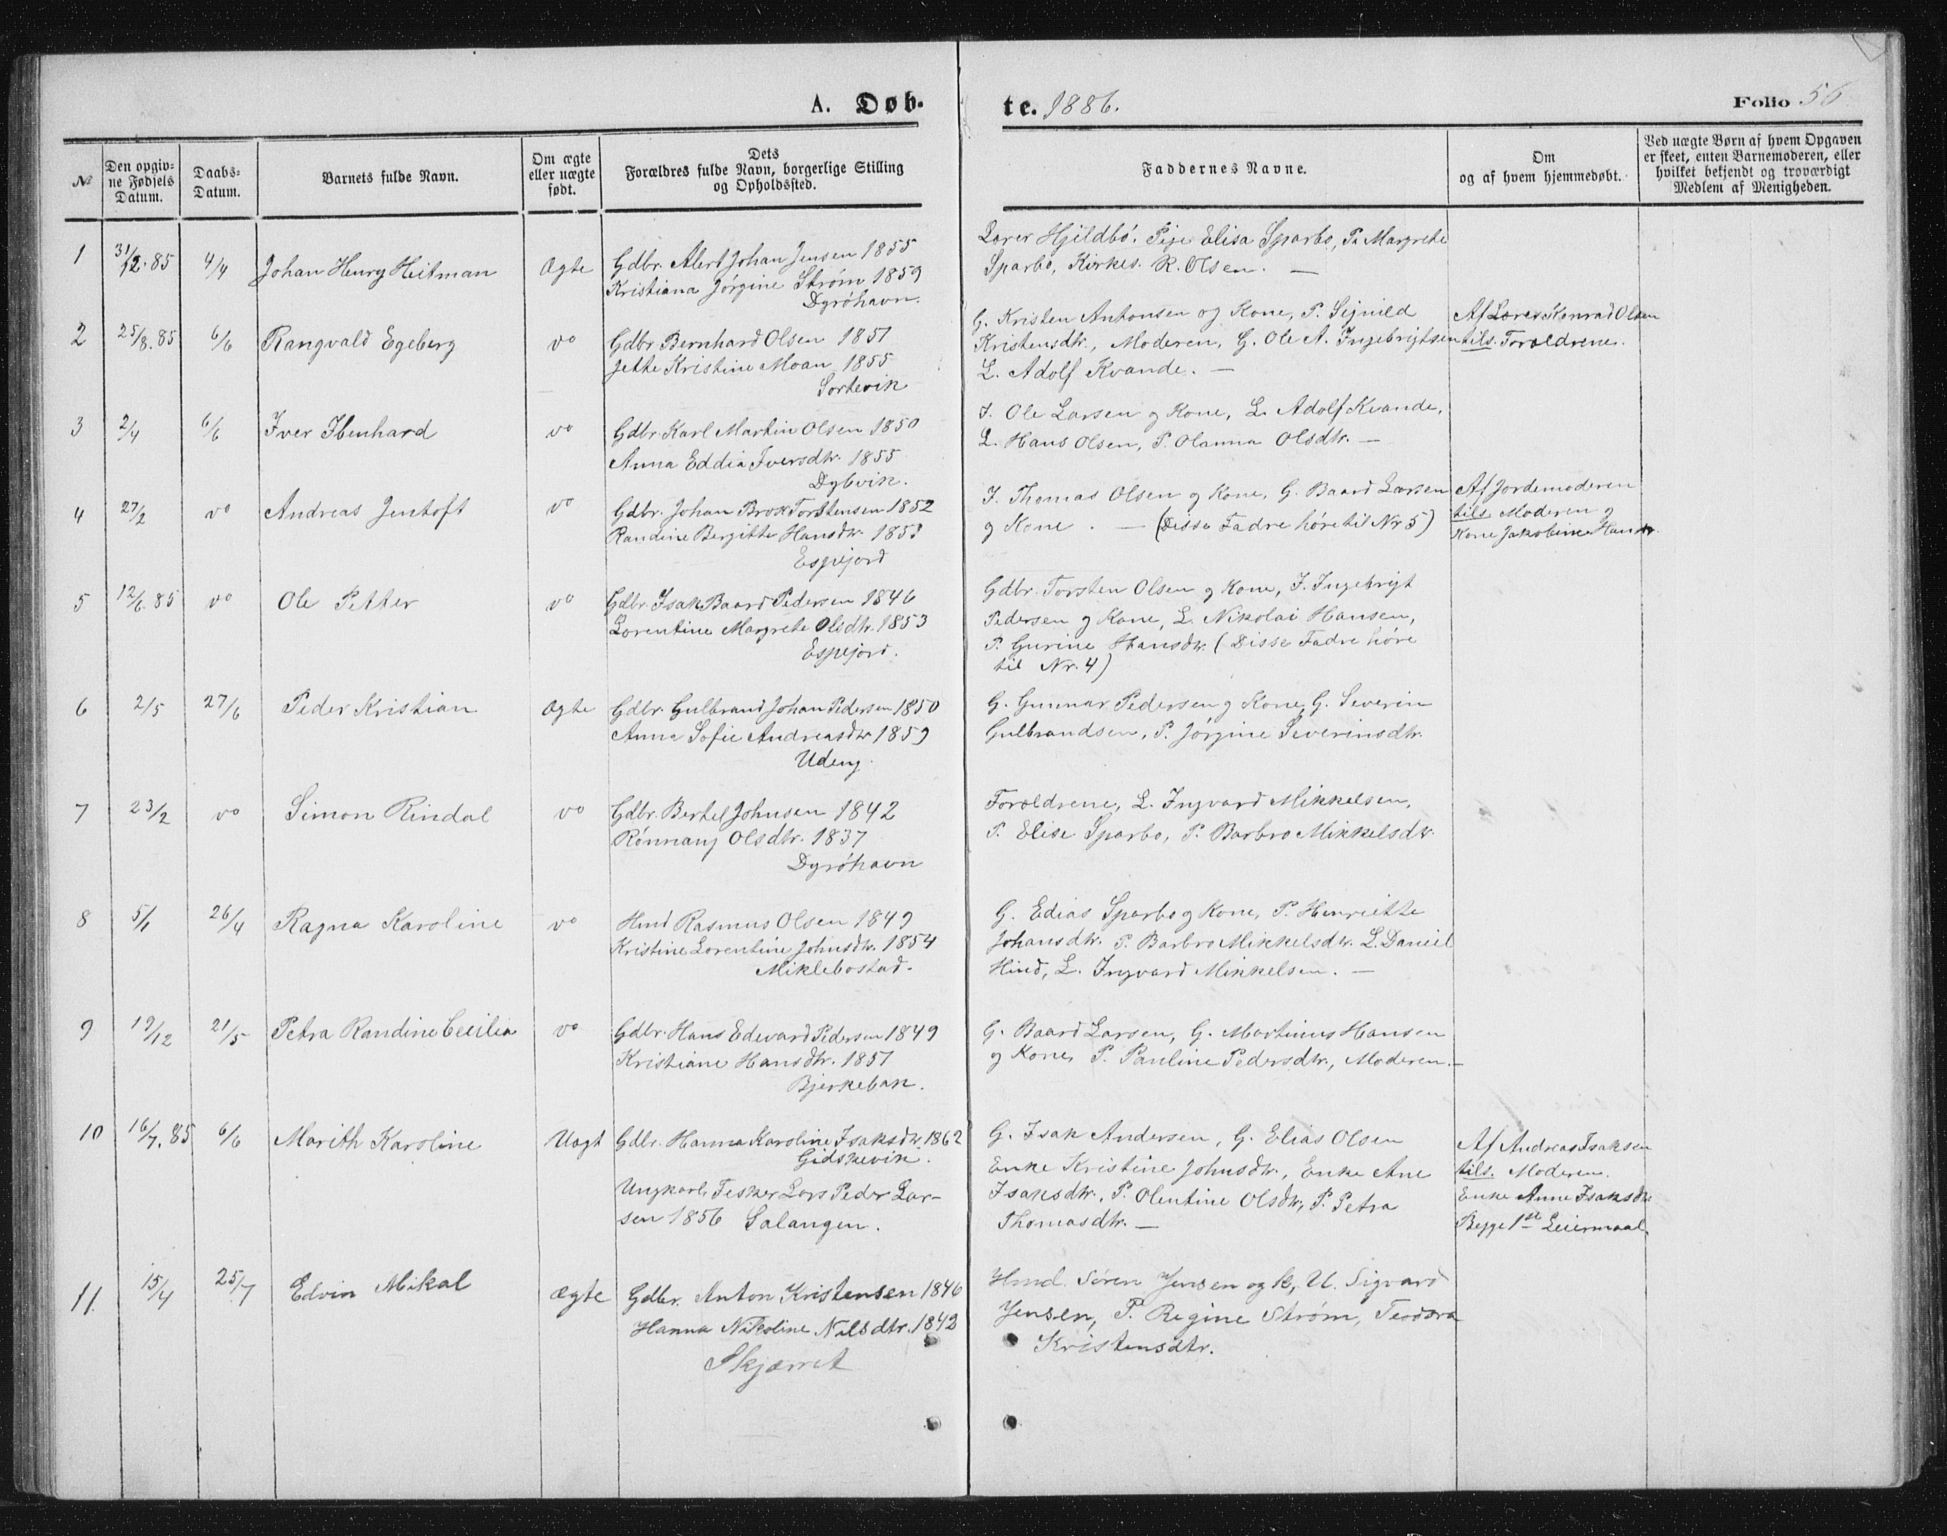 A. Døb-
te. 1886.
Folio 56
№
Den opgiv-
ne Fødsels
Datum.
Daabs-
Datum.
Barnets fulde Navn.
Om ægte
eller uægte
født.
Dets
Forældres fulde Navn, borgerlige Stilling
og Opholdssted.
Faddernes Navne.
Om
og af hvem hjemmedøbt.
Ved uægte Børn af hvem Opgaven
er skeet, enten Barnemoderen, eller
hvilket bekjendt og troværdigt
Medlem af Menigheden.
1 31/12.85 4/4 Johan Henry Heitman Ægte
Gdbr. Alert Johan Jensen 1855
Kristiana Jørgine Strøm 1859
Dyröhavn.
Lærer Hjildbö. Pige Elisa Sparbo, P. Margrete
Sparbo, Kirkes. R. Olsen. —
2 25/8.85 6/6 Rangvald Egeberg vo
Gdbr Bernhard Olsen 1851
Jette Kristine Moan 1855
Sortevik
G. Kristen Antonsen og Kone, P. Signild
Kristensdtr., Moderen, G. Ole A. Ingebrigtsen
L. Adolf Kvande. —
Af Lærer Konrad Olsen
tils. Forældrene.
3 2/4 6/6 Iver Ibenhard vo
Gdbr. Karl Martin Olsen 1850
Anna Eddia Iversdtr. 1855
Dybvik.
I. Ole Larsen og Kone, L. Adolf Kvande,
L. Hans Olsen, P. Olanna Olsdtr. —
4 27/2 vo Andreas Jentoft vo
Gdbr. Johan Brox Torstensen 1852
Randine Bergitte Hansdtr. 1853
Espejord
I. Thomas Olsen og Kone, G. Baard Larsen
og Kone. — (Disse Fadre høre til Nr 5)
Af Jordemoderen
tils. Moderen og
Kone Jakobine Hansdtr.
5 12/6.85 vo Ole Petter vo
Gdbr. Isak Baard Pedersen 1846
Lorentine Margrete Olsdtr. 1853
Espejord.
Gdbr. Torsten Olsen og Kone, I. Ingebrigt
Pedersen og Kone, L. Nikolai Hansen,
P. Gurine Hansdtr (Disse Fadre høre
til Nr. 4)
6 2/5 27/6 Peder Kristian Ægte
Gdbr. Gulbrand Johan Pedersen 1850
Anna Sofie Andreasdtr 1859
Udeng.
G. Gunnar Pedersen og Kone, G. Severin
Gulbrandsen, P. Jørgine Severinsdtr.
7 23/2 vo Simon Rindal vo
Gdbr. Bertel Johnsen 1842
Rønnaug Olsdtr. 1837
Dyröhavn
Forældrene, L. Ingvard Mikkelsen,
P. Elise Sparbo, P. Barbro Mikkelsdtr.
8 5/1 26/4 Ragna Karoline vo
Hmd Rasmus Olsen 1849
Kristine Lorentine Johnsdtr. 1854
Miklebostad.
G. Edias Sparbo og Kone, P. Henriette
Johansdtr. P. Barbro Mikkelsdtr. L. Daniel
Hind, L. Ingvard Mikkelsen. —
9 19/12 21/5 Petra Randine Cecilia vo
Gdbr. Hans Edevard Pedersen 1849
Kristiane Hansdtr. 1851
Bjerkebak.
G. Baard Larsen, G. Martinus Hansen
og Kone, P. Pauline Pedersdtr., Moderen. —
10 16/7.85 6/6 Marith Karoline Uægt
Gdbr. Hanna Karoline Isaksdtr 1862
Gidskevik.
Ungkarl, Fisker Lars Peder Lar-
sen 1856 Salangen.
G. Isak Andersen, G. Elias Olsen
Enke Kristine Johnsdtr., Enke Ane
Isaksdtr., P. Olentine Olsdtr, P. Petra
Thomasdtr. —
Af Andreas Isaksen
tils. Moderen.
Enke Anne Isaksdtr
Begge 1ste Leiermaal.
11. 15/4 25/7 Edvin Mikal Ægte
Gdbr. Anton Kristensen 1846
Hanna Nikoline Nilsdtr. 1842
Skjærret
Hmd. Sören Jensen og K, U. Sigvard
Jensen, P. Regine Strøm, Teodora
Kristensdtr.